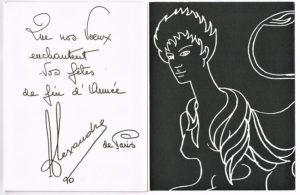 Que nos Vœux
enchantent
vos fêtes
de fin d'Année
Alexandre
de Paris
90